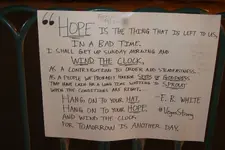 “HOPE IS THE THING THAT IS LEFT TO US,
IN A BAD TIME.
I SHALL GET UP SUNDAY MORNING AND
WIND THE CLOCK,
AS A CONTRIBUTION TO ORDER AND STEADFASTNESS.
AS A PEOPLE WE PROBABLY HARBOR SEEDS OF GOODNESS
THAT HAVE LAIN FOR A LONG TIME WAITING TO SPROUT
WHEN THE CONDITIONS ARE RIGHT.
HANG ON TO YOUR HAT.
HANG ON TO YOUR HOPE.
AND WIND THE CLOCK,
FOR TOMORROW IS ANOTHER DAY.
- E.B. WHITE
#VegasStrong